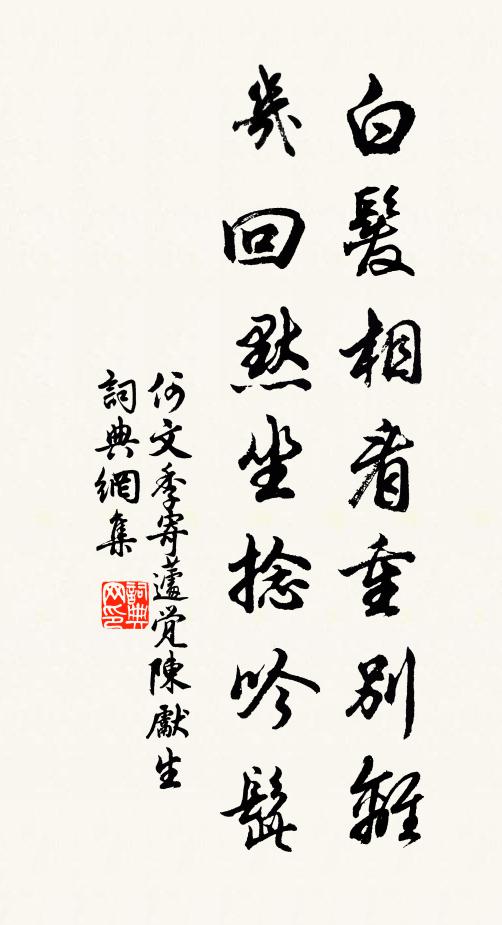 白髮相看重別離
幾回默坐捻吟髭
何文季寄蘆覚陳獻生
詞典網集
詞典网印